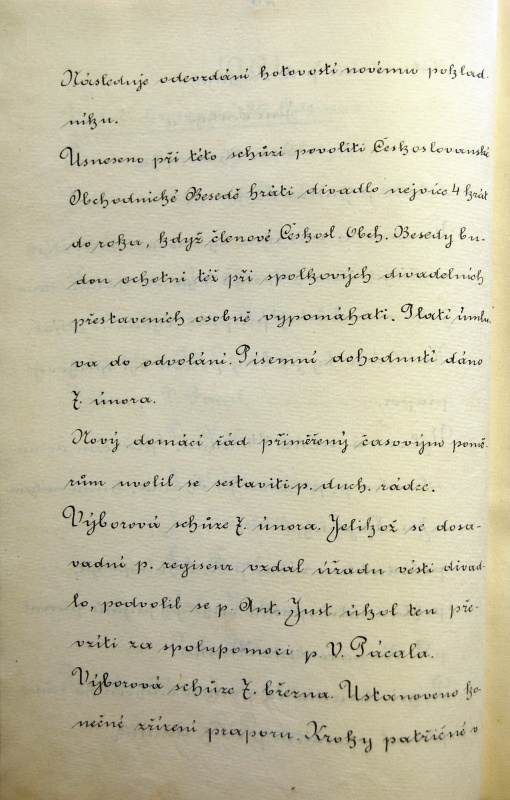 Následuje odevzdání hotovosti novému poklad-
níku.
Usneseno při této schůzi povoliti Českoslovanské
Obchodnické Besedě hráti divadlo nejvíce 4 krát
do roka, když členové Českosl. Obch. Besedy bu-
dou ochotni též při spolkových divadelních
přestaveních osobně vypomáhati. Platí úmlu-
va do odvolání. Písemní dohodnutí dáno
7. února.
Nový domácí řád přiměřený časovým pomě-
rům uvolil se sestaviti p. duch. rádce.
Výborová schůze 7. února. Jelikož se dosa-
vadní p. regiseur vzdal úřadu vésti divad-
lo, podvolil se p. Ant. Just úkol ten pře-
vzíti za spolupomoci p. V. Pácala.
Výborová schůze 7. března. Ustanoveno ko-
nečné zřízení praporu. Kroky patřičné v